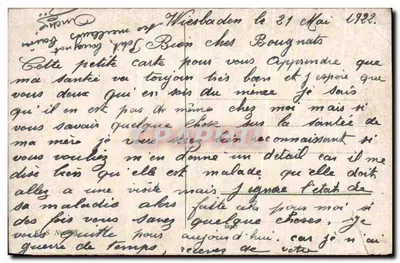 Wiesbaden le 21 Mai 1922.
Bien cher Bougnats
Cette petite carte pour vous apprendre que
ma santé va toujours très bien et j'espère que
vous deux qui en sois du même je sais
qu'il en est pas de même chez moi mais si
vous savais quelque chose sur la santée de
ma mère je vous serez très reconnaissant si
vous vouliez m'en donné un détail car il me
dise très qu'elle est malade, que elle doit
allez a une visite mais j'ignore l'état de
sa maladie alors faite ça pour moi si
des fois vous savez quelque choses. je
vous quitte pour aujourd'hui car je n'ai
guerre de temps, recevez de votre
petit
les meilleurs baisers